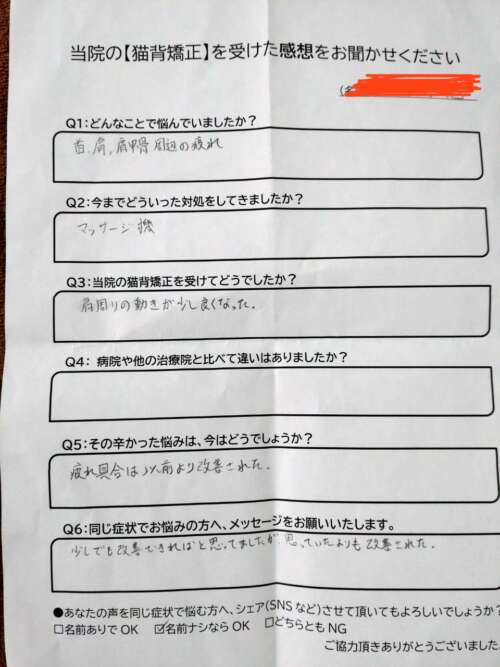 当院の【猫背矯正】を受けた感想をお聞かせください
Q1:どんなことで悩んでいましたか?
首、肩、肩甲骨周辺の疲れ
Q2:今までどういった対処をしてきましたか?
マッサージ機
Q3:当院の猫背矯正を受けてどうでしたか?
肩周りの動きが少し良くなった.
Q4: 病院や他の治療院と比べて違いはありましたか?
Q5:その辛かった悩みは、今はどうでしょうか?
疲れ具合は以前より改善された.
Q6:同じ症状でお悩みの方へ、メッセージをお願いいたします。
少しでも改善できればと思ってましたが、思っていたよりも改善された.
●あなたの声を同じ症状で悩む方へ、シェア(SNSなど)させて頂いてもよろしいでしょうか?
☐名前ありでOK ☑名前ナシなら OK ☐どちらともNG
ご協力頂きありがとうございまし